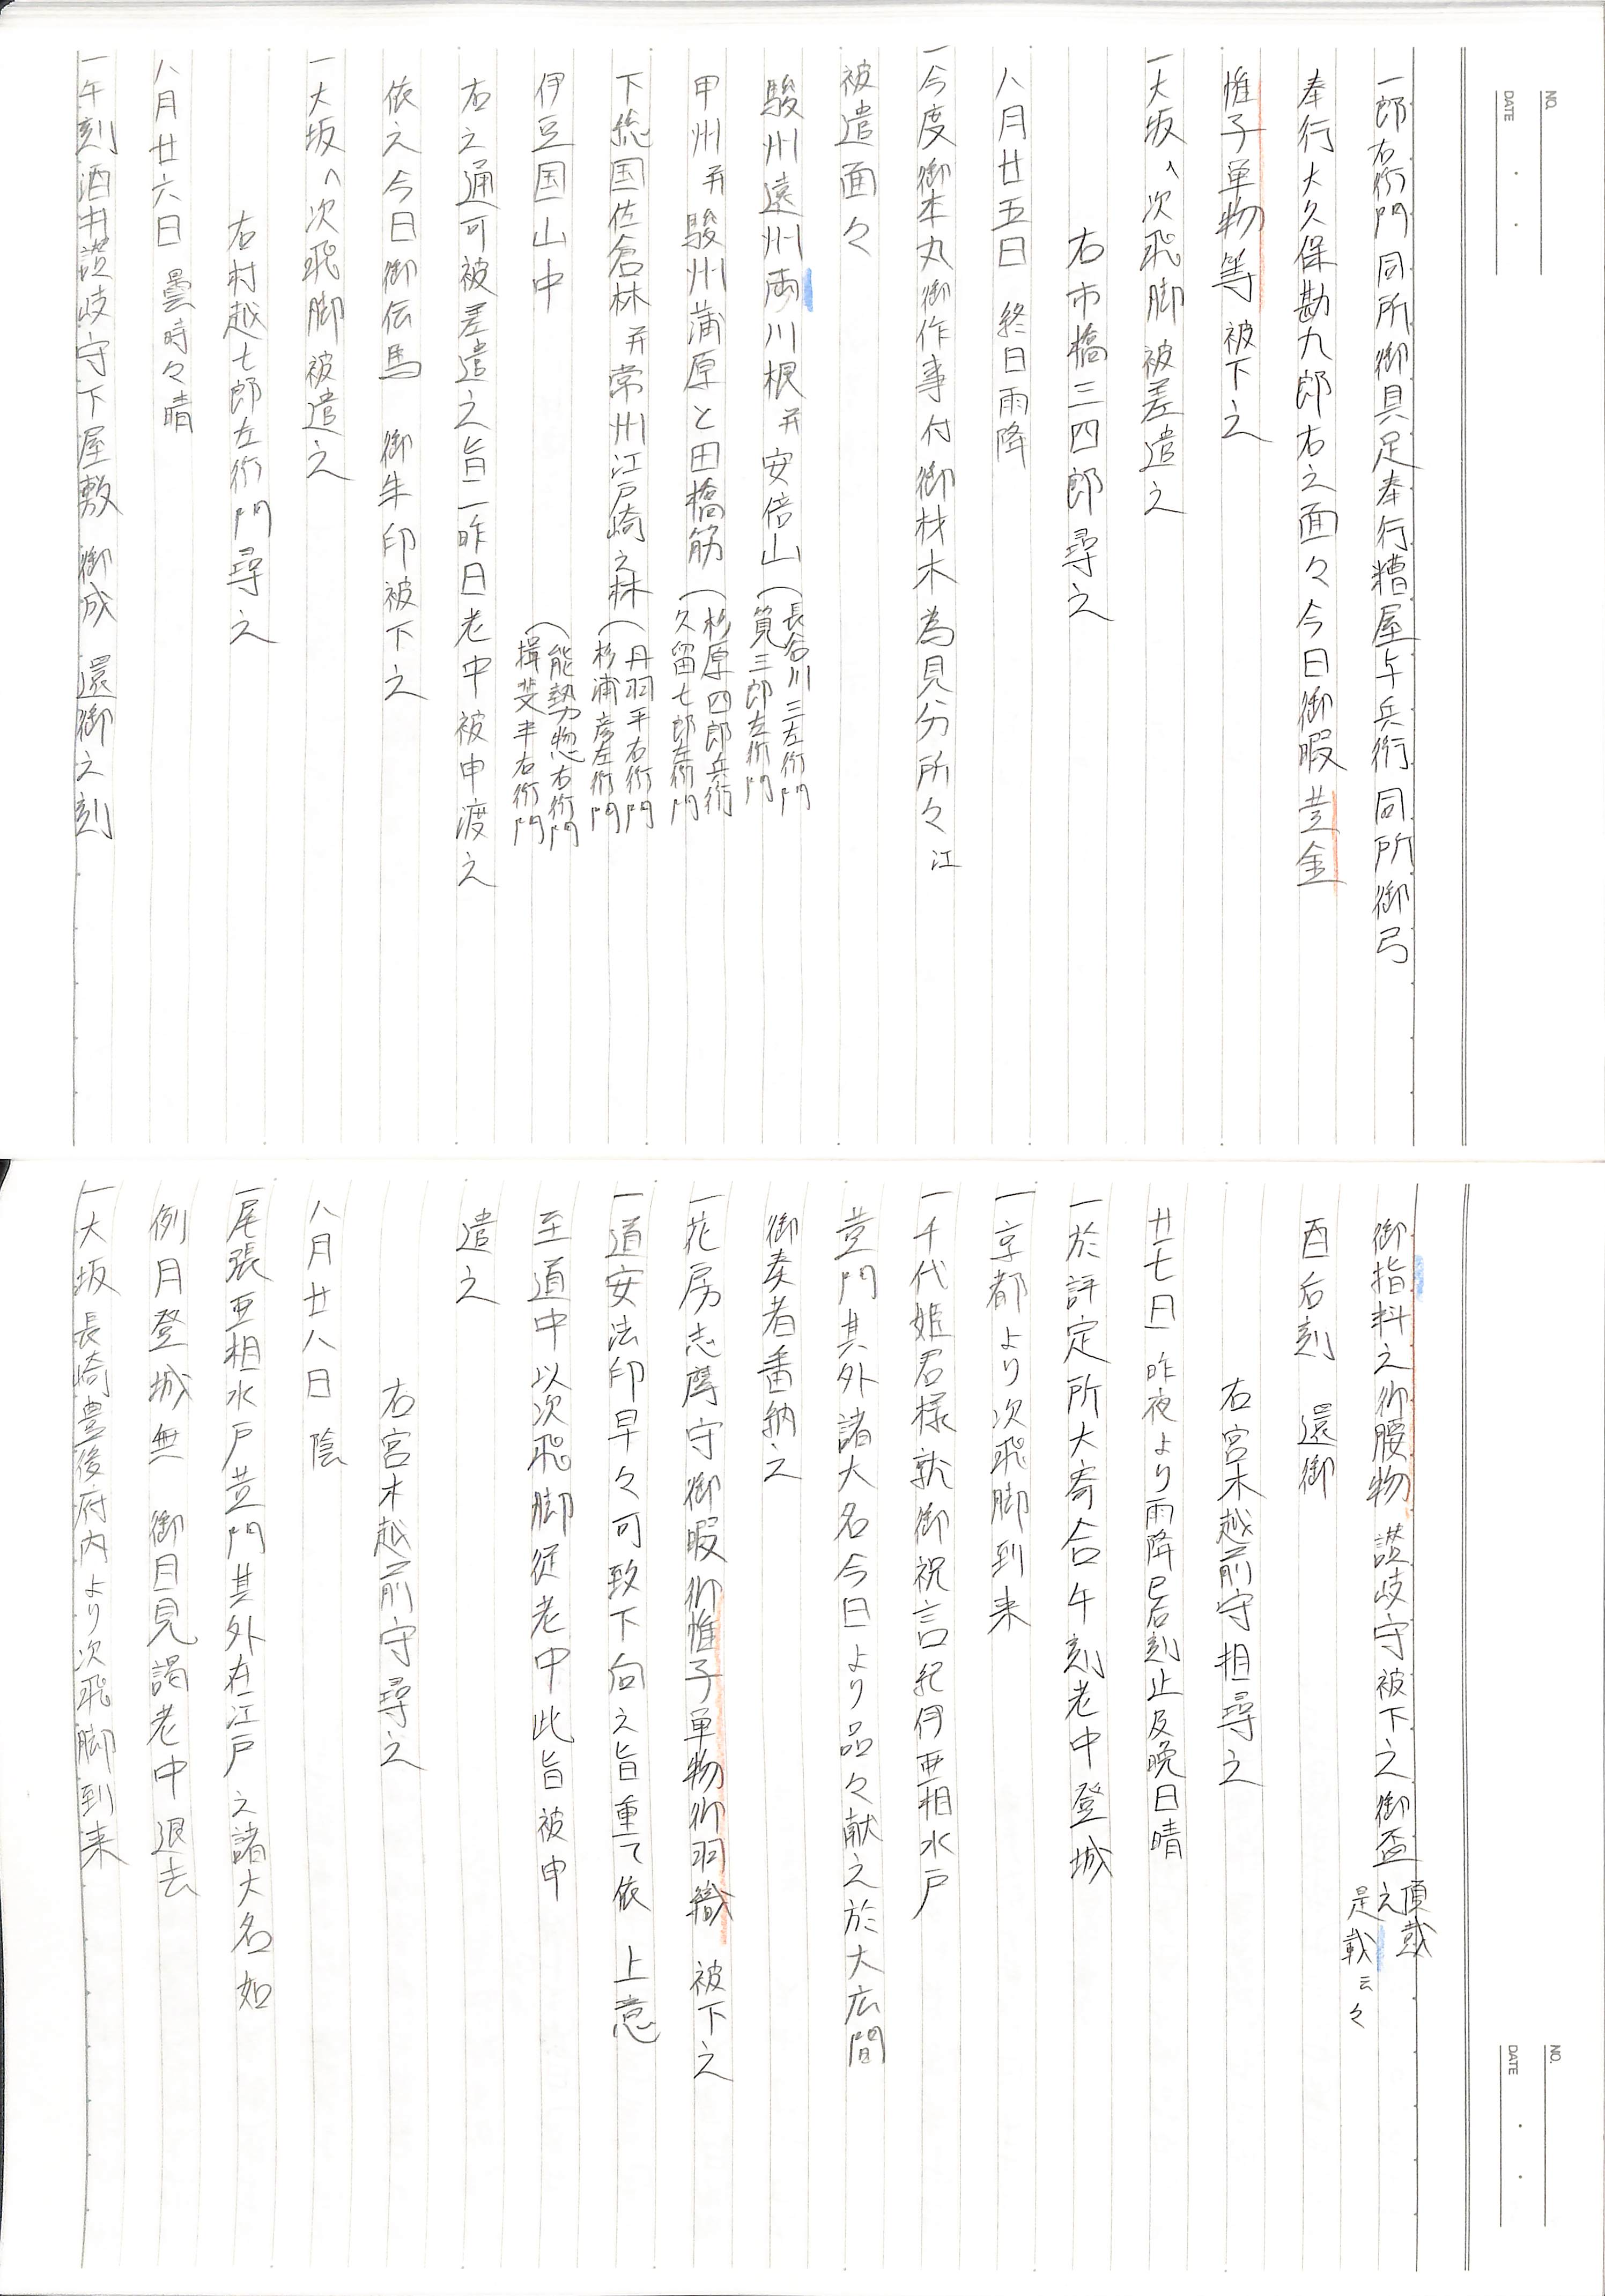 NO.
DATE
一郎右衛門同所御具足奉行糟屋与兵衛同所御弓
奉行大久保勘九郎右之面々今日御暇 並金
惟子単物等被下之
一大坂へ次飛脚被差遣之
右市橋三四郎尋之
八月廿五日 終日雨降
一今度御本丸御作事付御材木為見分所々江
被遣面々
駿州遠州両川根并安倍山(長谷川三左衛門
筧三郎左衛門
甲州并駿州蒲原と田橋筋(杉原四郎兵衛
久留七郎左衛門
下総国佐倉林并常州江戸崎之林(丹羽平右衛門
杉浦彦左衛門
伊豆国山中(能勢惣右衛門
揖斐半右衛門
右之通可被差遣之旨一昨日老中被申渡之
依之今日御伝馬 御朱印被下之
一大坂へ次飛脚被遣之
右村越七郎左衛門尋之
八月廿六日 曇時々晴
一午刻酒井讃岐守下屋敷 御成 還御之刻
NO.
DATE
御指料之御腰物 讃岐守被下之御盃頂戴
之
是載云々
酉后刻 還御
右宮木越前守担尋之
廿七日 昨夜より雨降辰后刻止及晩日晴
一於評定所大寄合午刻老中登城
一京都より次飛脚到来
一千代姫君様就御祝言紀伊亜相水戸
黄門其外諸大名今日より品々献之於大広間
御奏者番納之
一花房志摩守御暇御惟子単物御羽織 被下之
一道安法印早々可致下向之旨重て依 上意
至道中以次飛脚従老中此旨被申
遣之
右宮木越前守尋之
八月廿八日 陰
一尾張亜相水戸黄門其外在江戸之諸大名如
例月登城無 御目見謁老中退去
一大坂長崎豊後府内より次飛脚到来